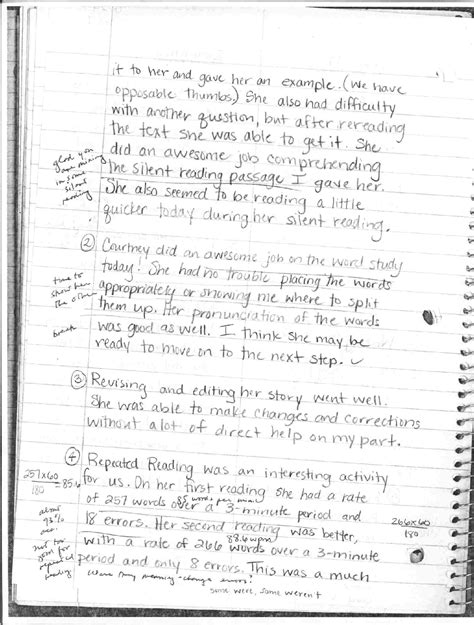 it to her and gave her an example. (We have
opposable thumbs.) She also had difficulty
with another question, but after rereading
the text she was able to get it. She
did an awesome job comprehending
the silent reading passage I gave her.
She also seemed to be reading a little
quicker today during her silent reading.
glad you
are mixing
in some
silent
reading
② Courtney did an awesome job on the word study
today! She had no trouble placing the words
appropriately or showing me where to split
them up. Her pronunciation of the words
was good as well. I think she may be
ready to move on to the next step. ✓
time to
show her
the other
break
③ Revising and editing her story went well.
She was able to make changes and corrections
without a lot of direct help on my part.
④ Repeated Reading was an interesting activity
for us. On her first reading she had a rate
of 257 words over a 3-minute period and
18 errors. Her second reading was better,
with a rate of 266 words over a 3-minute
period and only 8 errors. This was a much
257x60
180
=85.6
85 words per
88.6wpm
266x60
180
about
93%
acc.
not too
good for
repeated
reading
were they meaning-change errors?
some were, some weren't